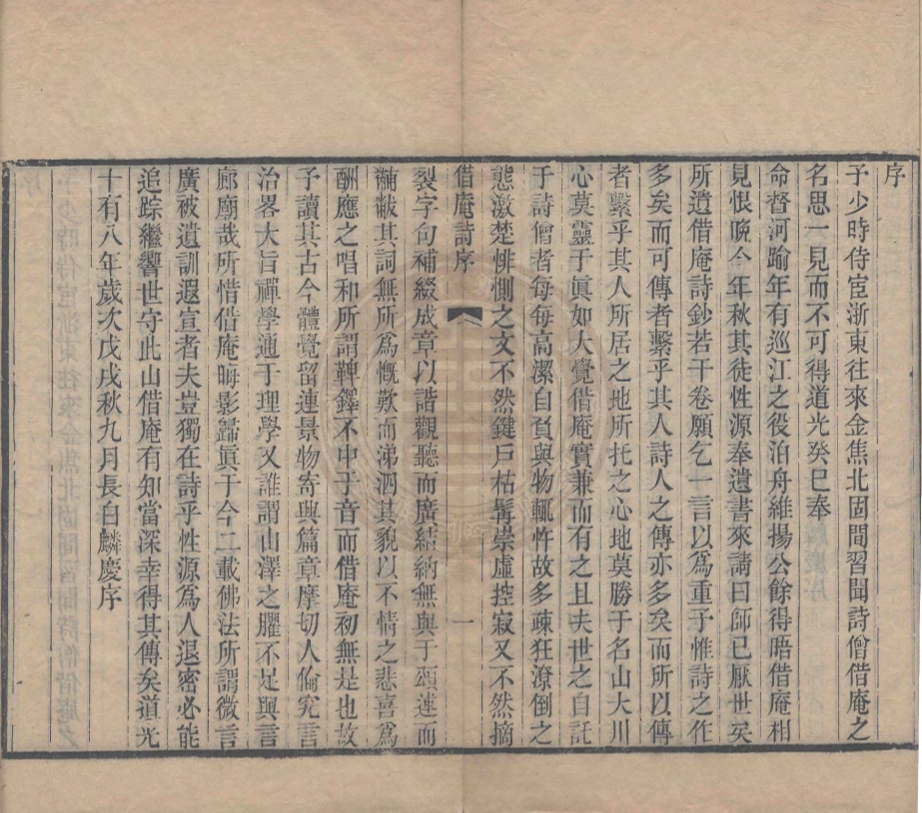 序
予少時侍宦浙東往來金焦北固間習聞詩僧借庵之
名思一見而不可得道光癸巳奉
命督河踰年有巡江之役泊舟維揚公餘得晤借庵相
見恨晚今年秋其徒性源奉遺書來請曰師已厭世矣
所遺借庵詩鈔若干卷願乞一言以爲重予惟詩之作
多矣而可傳者繫乎其人詩人之傳亦多矣而所以傳
者繫乎其人所居之地所托之心地莫勝于名山大川
心莫靈于眞如大覺借庵實兼而有之且夫世之自託
于詩僧者每每高潔自負與物輒忤故多疎狂潦倒之
態激楚悱惻之文不然鍵戶枯髯崇虛控寂又不然摘
借庵詩序
一
裂字句補綴成章以譜觀聽而廣結納無與于頌述而
黼黻其詞無所爲慨歎而涕泗其貌以不情之悲喜爲
酬應之唱和所謂鞞鐸不中于音而借庵初無是也故
予讀其古今體覺留連景物寄興篇章摩切人倫究言
治畧大旨禪學通于理學又誰謂山澤之臞不足與言
廊廟哉所惜借庵晦影歸眞于今二載佛法所謂微言
廣被遺訓遐宣者夫豈獨在詩乎性源爲人退密必能
追踪繼響世守此山借庵有知當深幸得其傳矣道光
十有八年歲次戊戌秋九月長白麟慶序